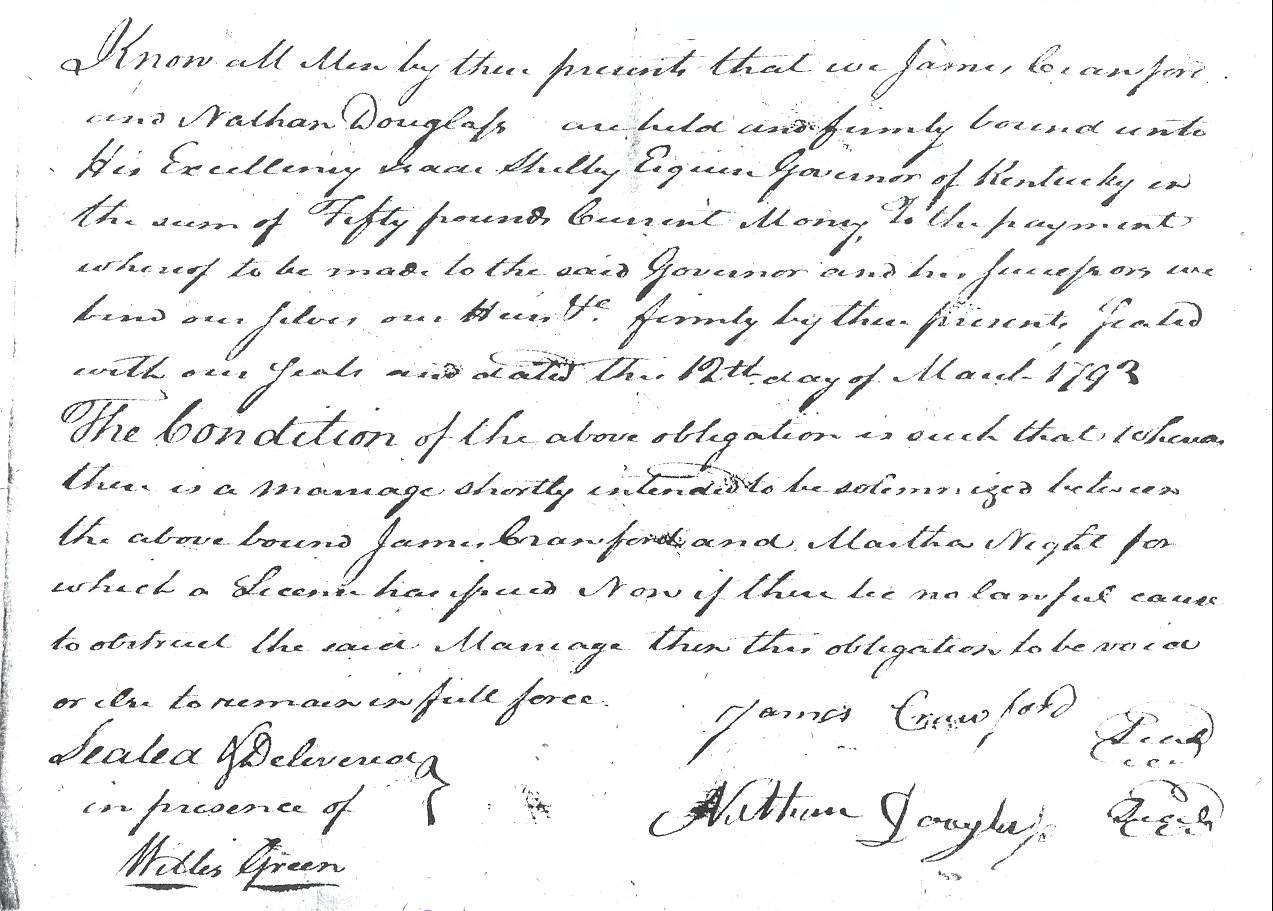 Know all Men by these presents that we James Cranford
and Nathan Douglass are held and firmly bound unto
His Excellency Isaac Shelby Esquire Governor of Kentucky in
the sum of Fifty pounds Current Money, To the payment
whereof to be made to the said Governor and his Successors we
bind our selves our Heirs &c. firmly by these presents Sealed
with our Seals and dated this 12th day of March 1793
The Condition of the above obligation is such that whereas
there is a marriage shortly intended to be solemnized between
the above bound James Cranford and Martha Night for
which a Licence has issued Now if there be no lawful cause
to obstruct the said Marriage then this obligation to be void
or else to remain in full force.
James Crawford Seal
Sealed & Delivered
in presence of
Nathan Douglass Seal
Willis Green